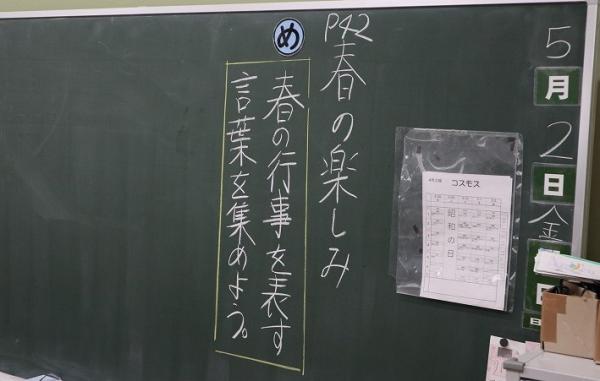 5月2日金
P42
春の楽しみ
め
春の行事を表す
言葉を集めよう。
コスモス
昭和の日